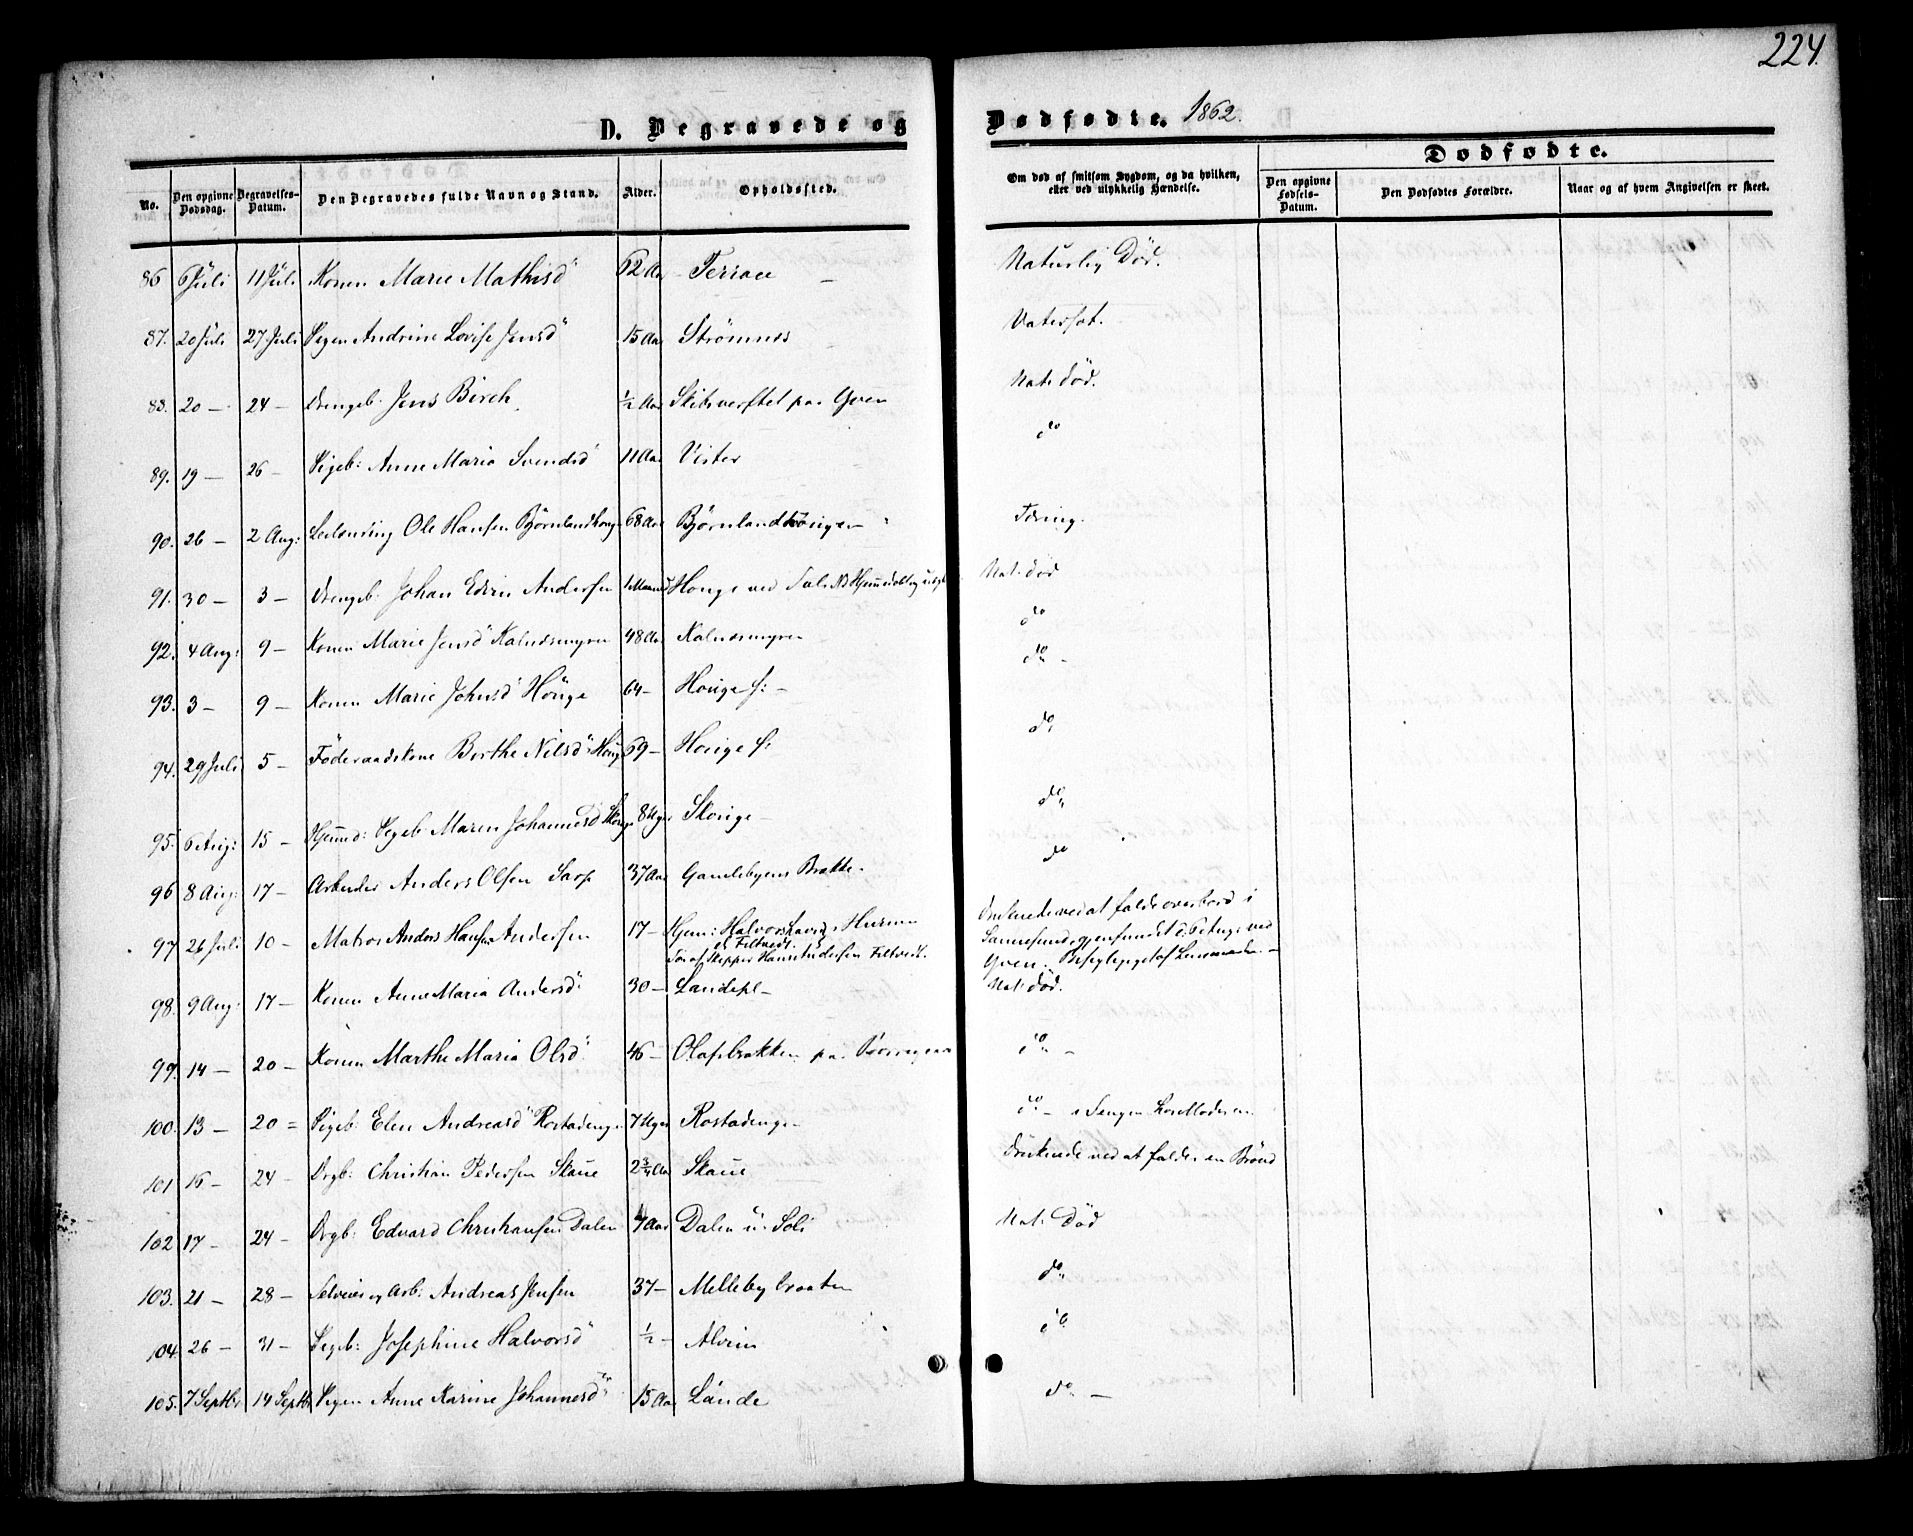 224.
D. Begravede og Dødfødte. 1862.
No.
Den opgivne Dødsdag.
Begravelses-Datum.
Den Begravedes fulde Navn og Stand.
Alder.
Opholdssted.
Om død af smitsom Sygdom, og da hvilken, eller ved ulykkelig Hændelse.
Dødfødte.
Den opgivne Fødsels-Datum.
Den Dødfødtes Forældre.
Naar og af hvem Angivelsen er skeet.
86 6 Juli 11 Juli Konen Marie Mathisd 62 Aar Naturlig Död.
87. 20 Juli 27 Juli Pigen Andrine Lovise Jensd 15 Aar Strömnes Vatersot.
88. 20 — 24 — Drengeb. Jens Birch ½ Aar Skibsverftet paa Yven Nat. död.
89. 19 — 26 — Pigeb: Anne Maria Svendsd 11 Aar Vister do
90. 26 — 2 Aug: Ole Hansen Björnlandhougen 68 Aar Björnlandhougen Tæring.
91. 30 — 3 — Drengeb. Johan Edvin Andersen 1 Maaned Houge ved Nat. död
92. 4 Aug: 9 — Konen Marie Jensd Kalnæsmyren 48 Aar Kalnæsmyren do
93. 3 — 9 — Konen Marie Johnsd Houge 64 — Houge do —
94. 29 Juli 5 — Föderaadskone Berthe Nilsd Houge 69 — Houge do
95. 6 Aug: 15 — Pigeb. Maren Johannesd 8 Uger Skouge — do
96 8 Aug: 17 — Arbeider Anders Olsen Sarp 37 Aar Gamlebyens Brække. do
97. 26 Juli 10 — Matros Anders Hansen Andersen 17 — Hjem: Halvorshavn i Hurum
og Filtvedt.
Sön af Skipper Hans Andersen Filtvedt.
Druknede ved at falde overbord i
gjenfundet d. 6 Aug: ved
Yven.
98. 9 Aug: 17 — Konen Anne Maria Andersd 30 — Landepl — Nat. död.
99. 14 — 20 — Konen Marthe Maria Olsd 46 — Olafsbrækken paa do —
100. 13 — 20 = Pigeb. Elen Andreasd Rostadenge 7 Uger Rostadenge — do — i Sengen hos Moderen
101 16 — 24 — Drgb: Christian Pedersen Skaue 2¾ Aar Skaue Druknede ved at falde i en Brönd
102 17 — 24 — Drgb: Edvard Christiansen Dalen Aar Dalen u. Soli Nat. Död
103. 21 — 28 — Selveier og Arb: Andreas Jensen 37 — Mellebybraaten do
104. 26 — 31 — Pigeb: Josephine Halvorsd ½ — Alvim do
105. 7 Septbr 14 Septbr Pigen Anne Karine Johannesd 15 Aar Lande do —